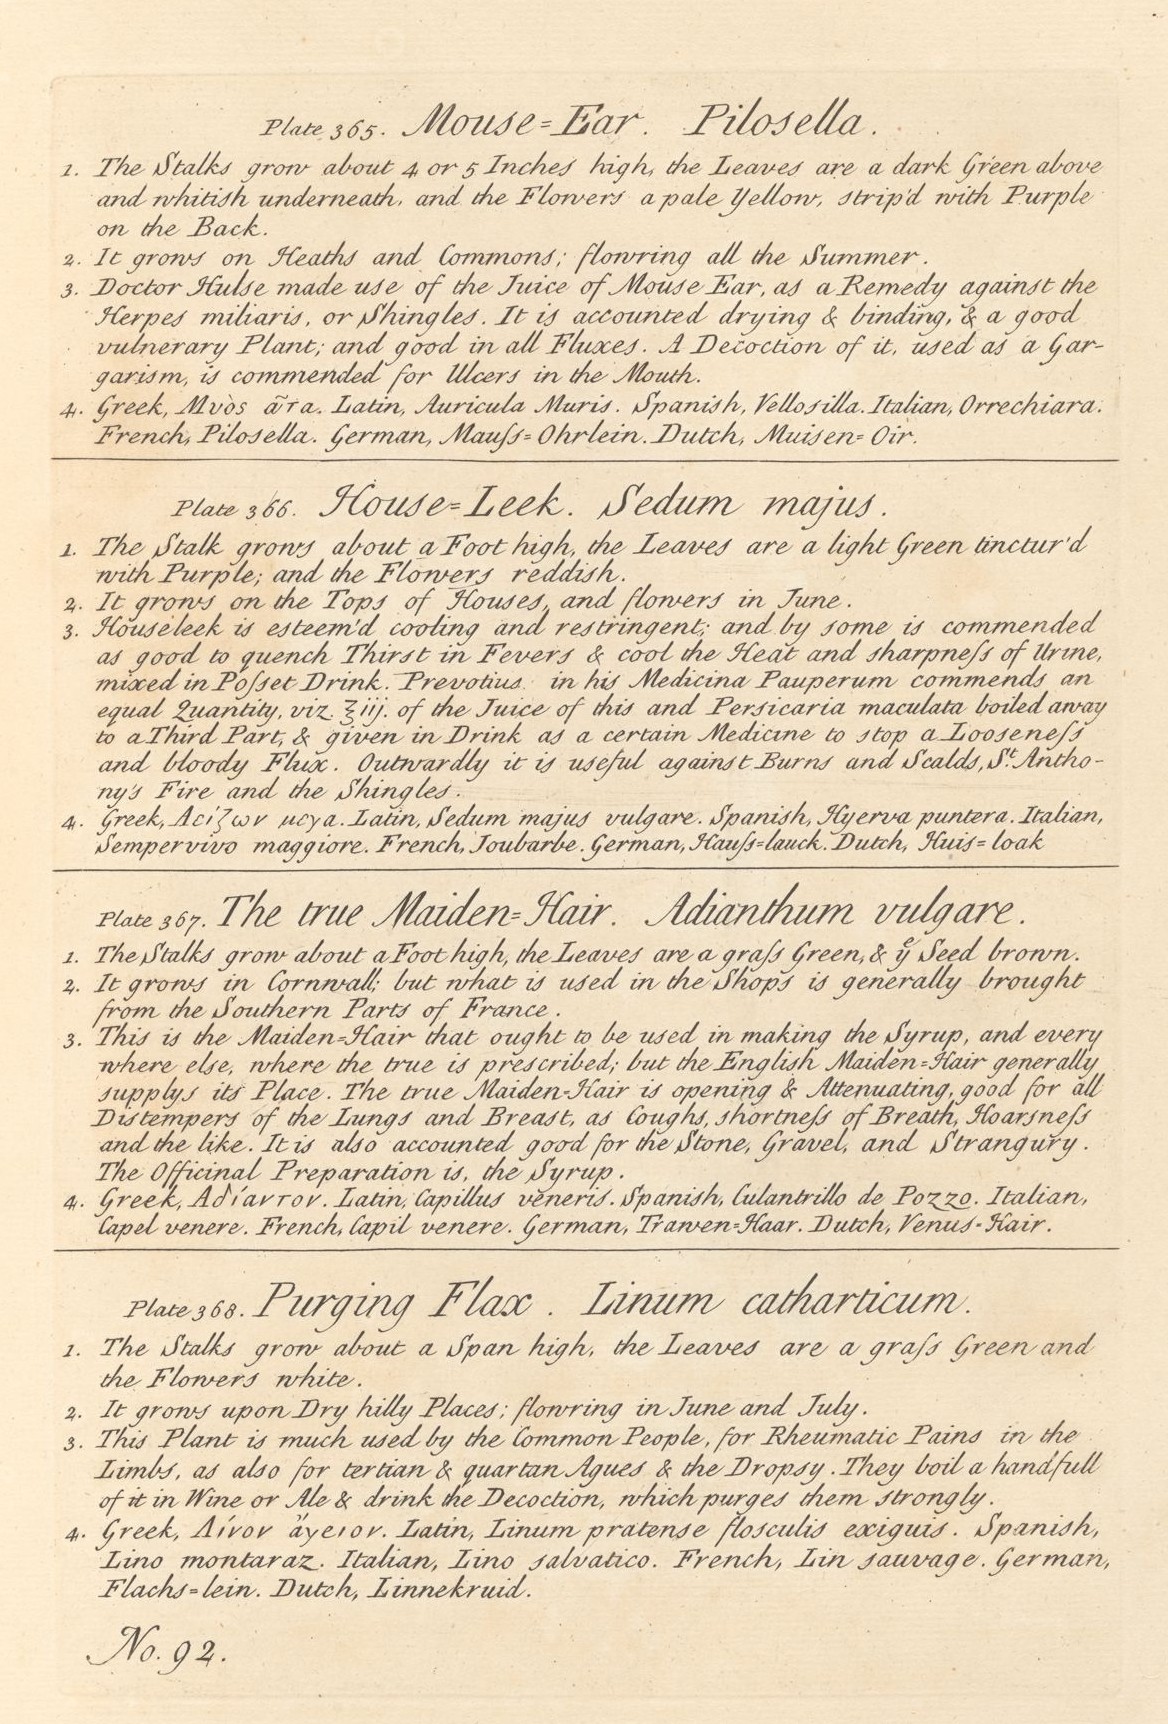 Plate 365. Mouse=Ear. Pilosella.
1. The Stalks grow about 4 or 5 Inches high, the Leaves are a dark Green above
and whitish underneath, and the Flowers a pale Yellow, strip'd with Purple
on the Back.
2. It grows on Heaths and Commons; flowring all the Summer.
3. Doctor Hulse made use of the Juice of Mouse Ear, as a Remedy against the
Herpes miliaris, or Shingles. It is accounted drying & binding, & a good
vulnerary Plant; and good in all Fluxes. A Decoction of it, used as a Gar-
garism, is commended for Ulcers in the Mouth.
4. Greek, Μυὸς ὦτα. Latin, Auricula Muris. Spanish, Vellosilla. Italian, Orrechiara.
French, Pilosella. German, Mauſs=Ohrlein. Dutch, Muisen=Oir.
Plate 366. House=Leek. Sedum majus.
1. The Stalk grows about a Foot high, the Leaves are a light Green tinctur'd
with Purple; and the Flowers reddish.
2. It grows on the Tops of Houses, and flowers in June.
3. Houseleek is esteem'd cooling and restringent; and by some is commended
as good to quench Thirst in Fevers & cool the Heat and sharpneſs of Urine,
mixed in Poſset Drink. Prevotius in his Medicina Pauperum commends an
equal Quantity, viz. ℥iij. of the Juice of this and Persicaria maculata boiled away
to a Third Part, & given in Drink as a certain Medicine to stop a Looseneſs
and bloody Flux. Outwardly it is useful against Burns and Scalds, St. Antho-
ny's Fire and the Shingles.
4. Greek, Αείζων μεγα. Latin, Sedum majus vulgare. Spanish, Hyerva puntera. Italian,
Sempervivo maggiore. French, Joubarbe. German, Hauſs=lauck. Dutch, Huis=loak
Plate 367. The true Maiden=Hair. Adianthum vulgare.
1. The Stalks grow about a Foot high, the Leaves are a graſs Green, & ye Seed brown.
2. It grows in Cornwall; but what is used in the Shops is generally brought
from the Southern Parts of France.
3. This is the Maiden=Hair that ought to be used in making the Syrup, and every
where else, where the true is prescribed; but the English Maiden=Hair generally
supplys its Place. The true Maiden-Hair is opening & Attenuating, good for all
Distempers of the Lungs and Breast, as Coughs, shortneſs of Breath, Hoarsneſs
and the like. It is also accounted good for the Stone, Gravel, and Strangury.
The Officinal Preparation is, the Syrup.
4. Greek, Αδίαντον. Latin, Capillus veneris. Spanish, Culantrillo de Pozzo. Italian,
Capel venere. French, Capil venere. German, Trawen=Haar. Dutch, Venus=Hair.
Plate 368. Purging Flax. Linum catharticum.
1. The Stalks grow about a Span high, the Leaves are a graſs Green and
the Flowers white.
2. It grows upon Dry hilly Places; flowring in June and July.
3. This Plant is much used by the Common People, for Rheumatic Pains in the
Limbs, as also for tertian & quartan Agues & the Dropsy. They boil a handfull
of it in Wine or Ale & drink the Decoction, which purges them strongly.
4. Greek, Λίνον ἄγειον. Latin, Linum pratense flosculis exiguis. Spanish,
Lino montaraz. Italian, Lino salvatico. French, Lin sauvage. German,
Flachs=lein. Dutch, Linnekruid.
No. 92.